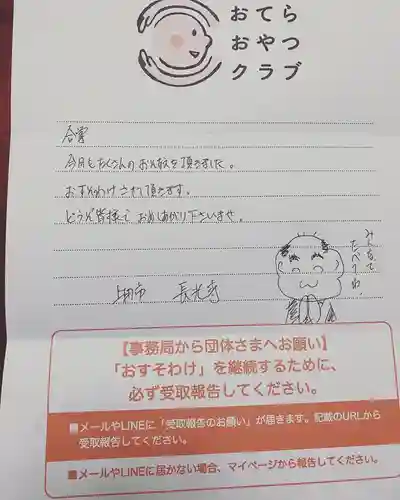 おてら
おやつ
クラブ
合掌
今月もたくさんのお供えを頂きました。
おすそわけさせて頂きます。
どうぞ皆様で お召しあがり下さいませ。
みんなで
たべてね。
上田市 長光寺
【事務局から団体さまへお願い】
「おすそわけ」を継続するために、
必ず受取報告してください。
■メールやLINEに「受取報告のお願い」が届きます。記載のURLから
受取報告してください。
■メールやLINEに届かない場合、マイページから報告してください。